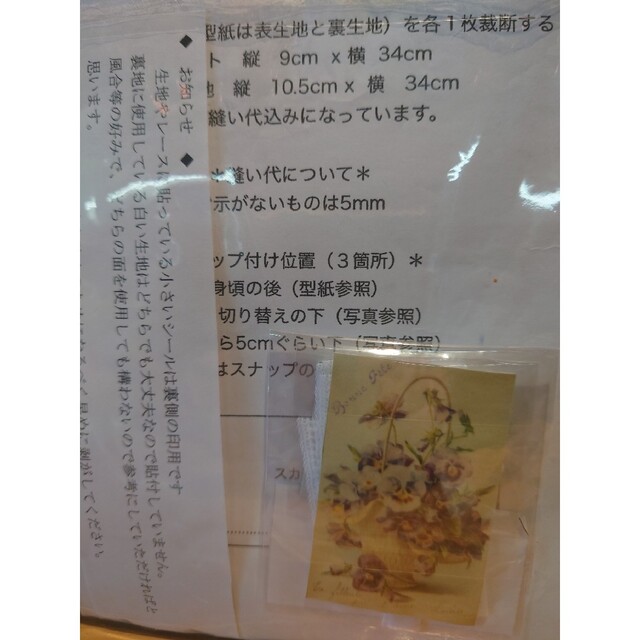 型紙は表生地と裏生地）を各１枚裁断する
ト　縦　9cm x 横 34cm
地　縦　10.5cm x 横　34cm
縫い代込みになっています。
＊縫い代について＊
示がないものは5mm
ップ付け位置（３箇所）＊
身頃の後（型紙参照）
切り替えの下（写真参照）
ら5cmぐらい下（写真参照）
はスナップの
スカ
◆ お知らせ ◆
生地やレースに貼っている小さいシールは裏側の印用です
裏地に使用している白い生地はどちらでも大丈夫なので貼付していません。
風合等の好みで、どちらの面を使用しても構わないので参考にしていただければと
思います。
剥がしてください。
Bonne Fête